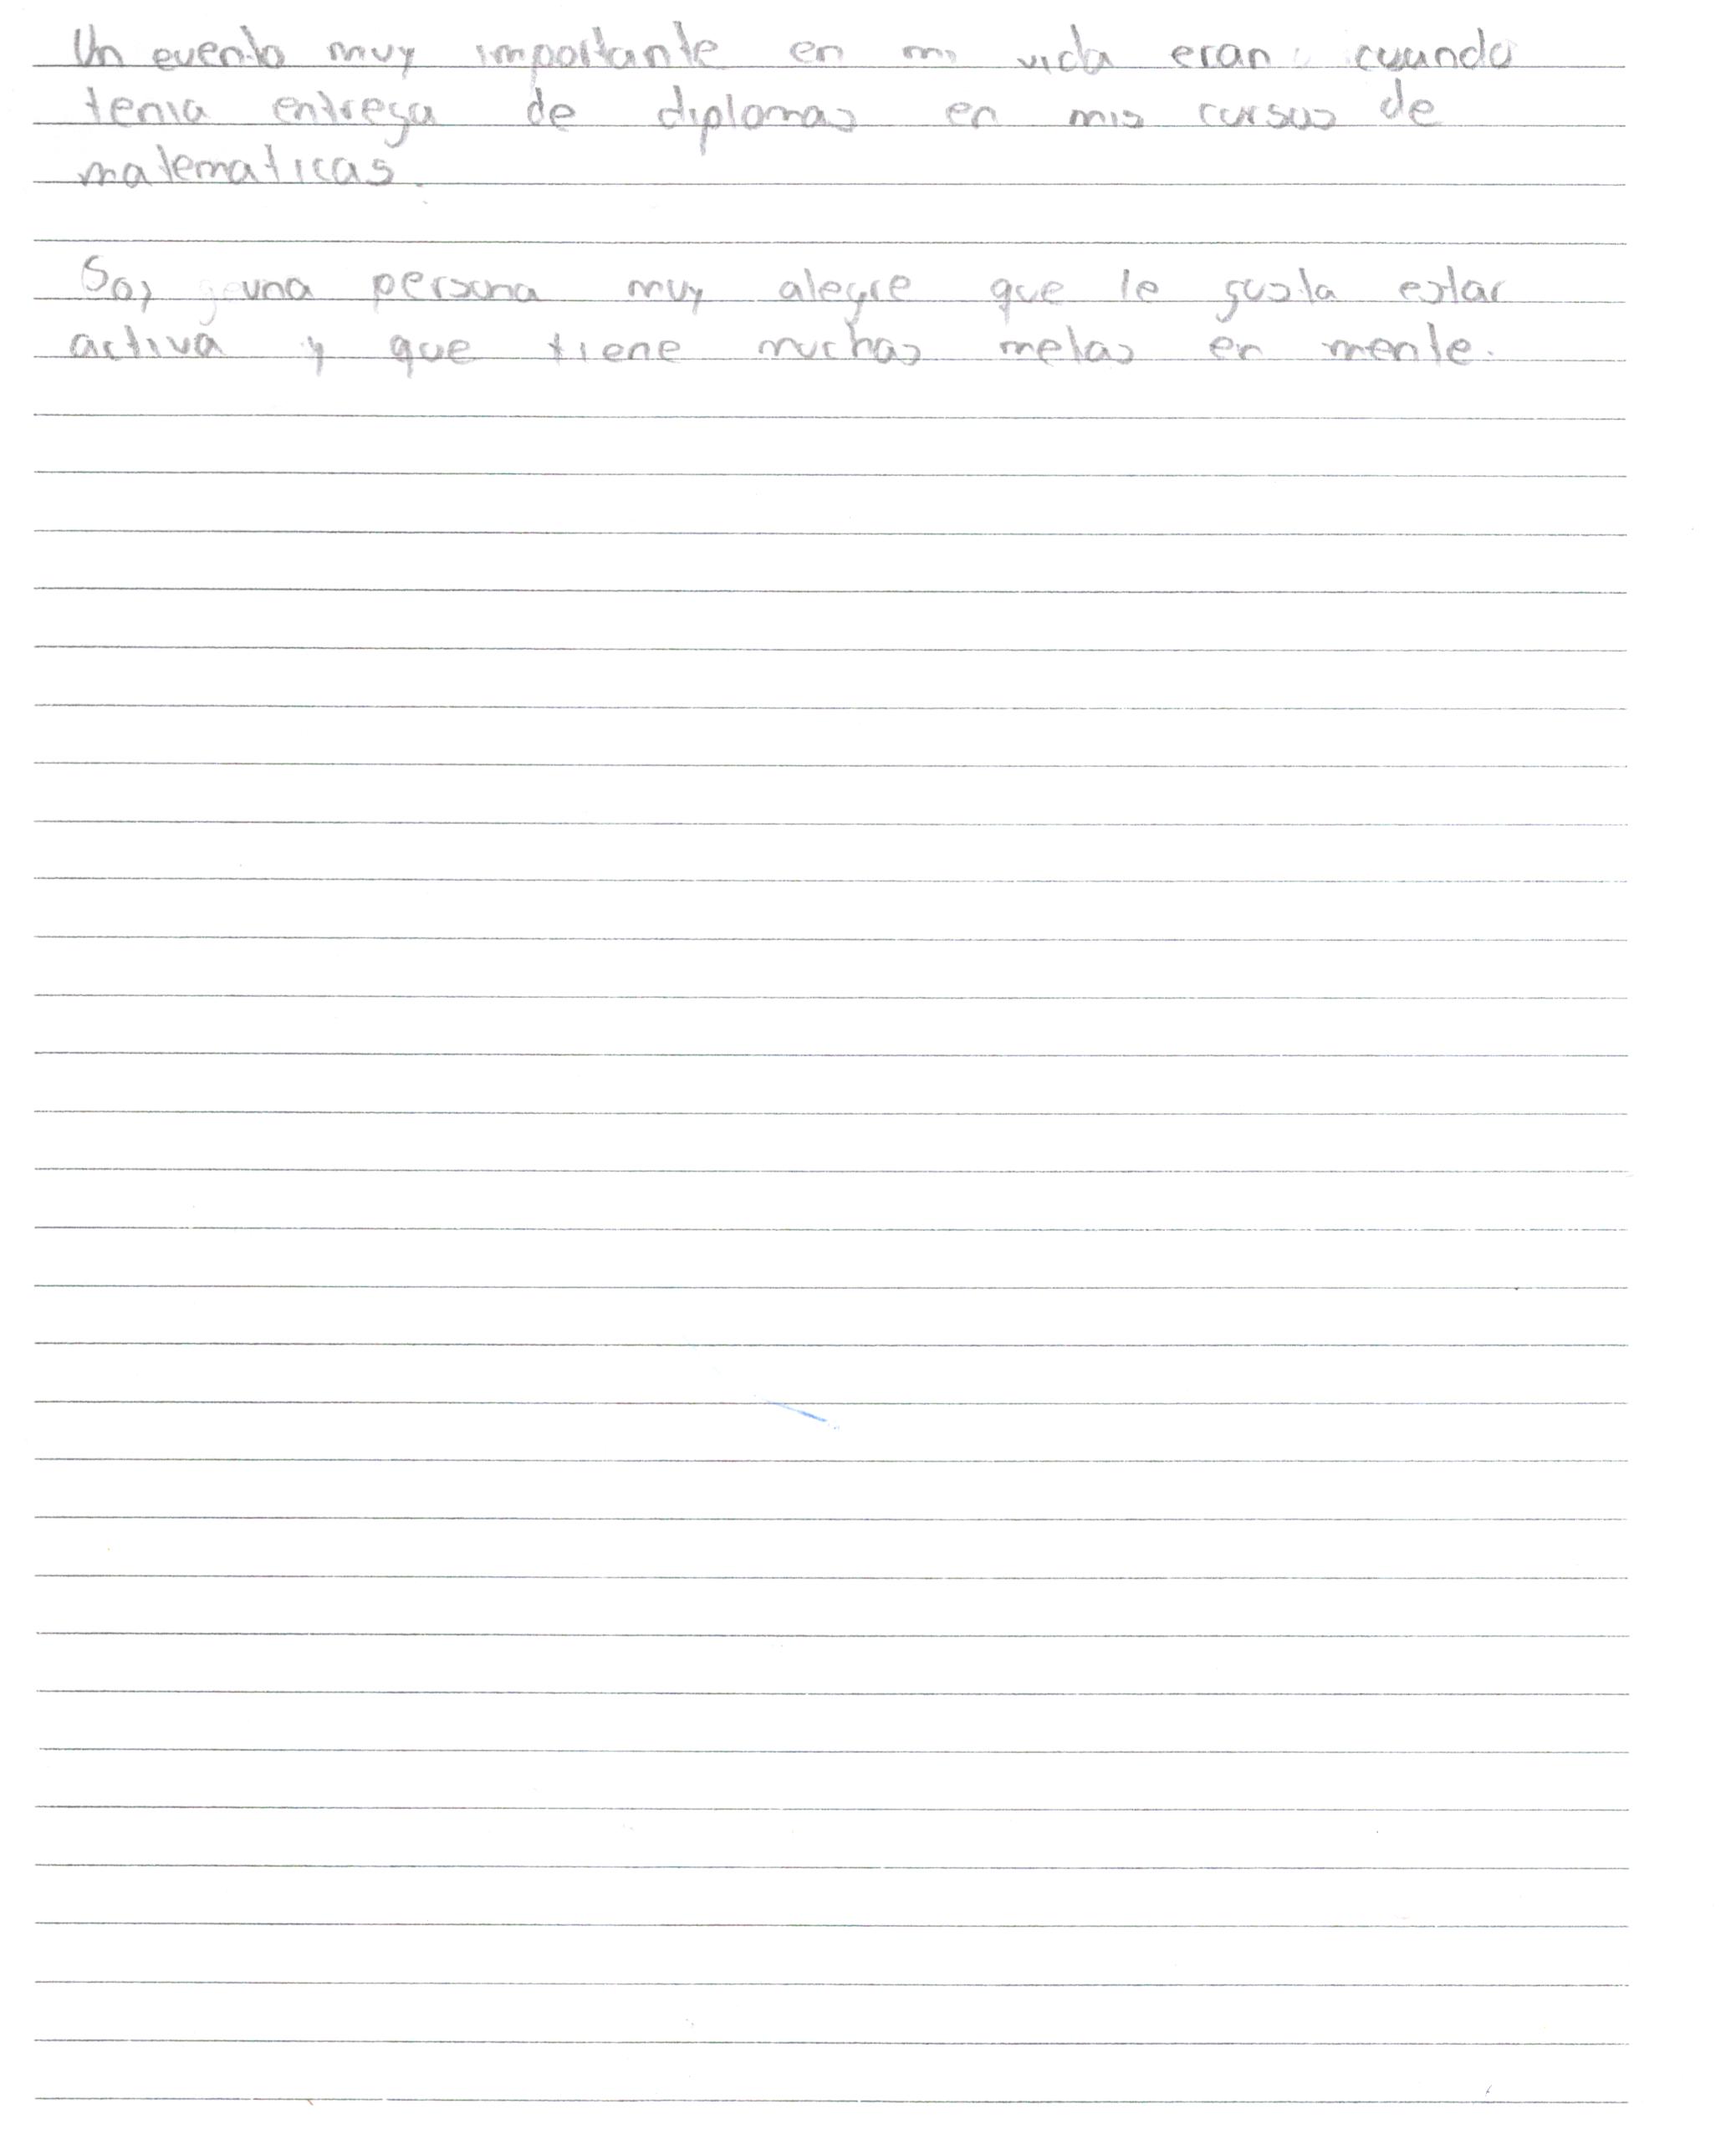 Un evento muy importante en mi vida eran cuando
tenia entrega de diplomas en mis cursos de
matematicas.
Soy una persona muy alegre que le gusta estar
activa y que tiene muchas metas en mente.